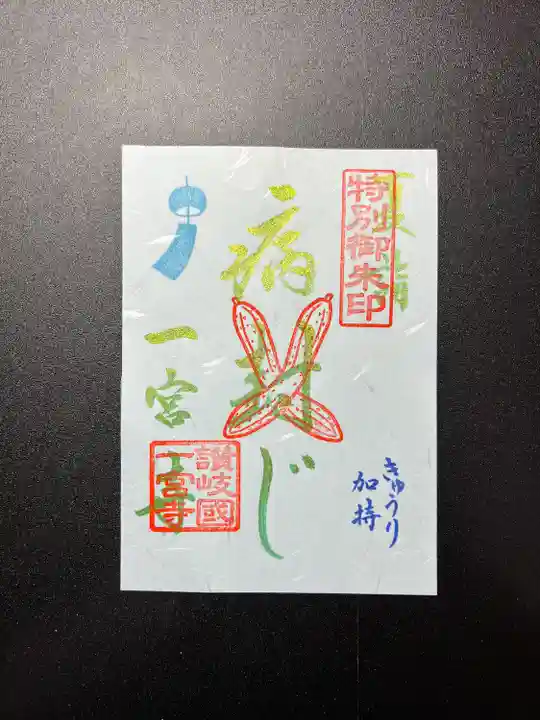 特別御朱印
夏詣
病封じ
きゅうり
加持
一宮寺
讃岐國
一宮寺